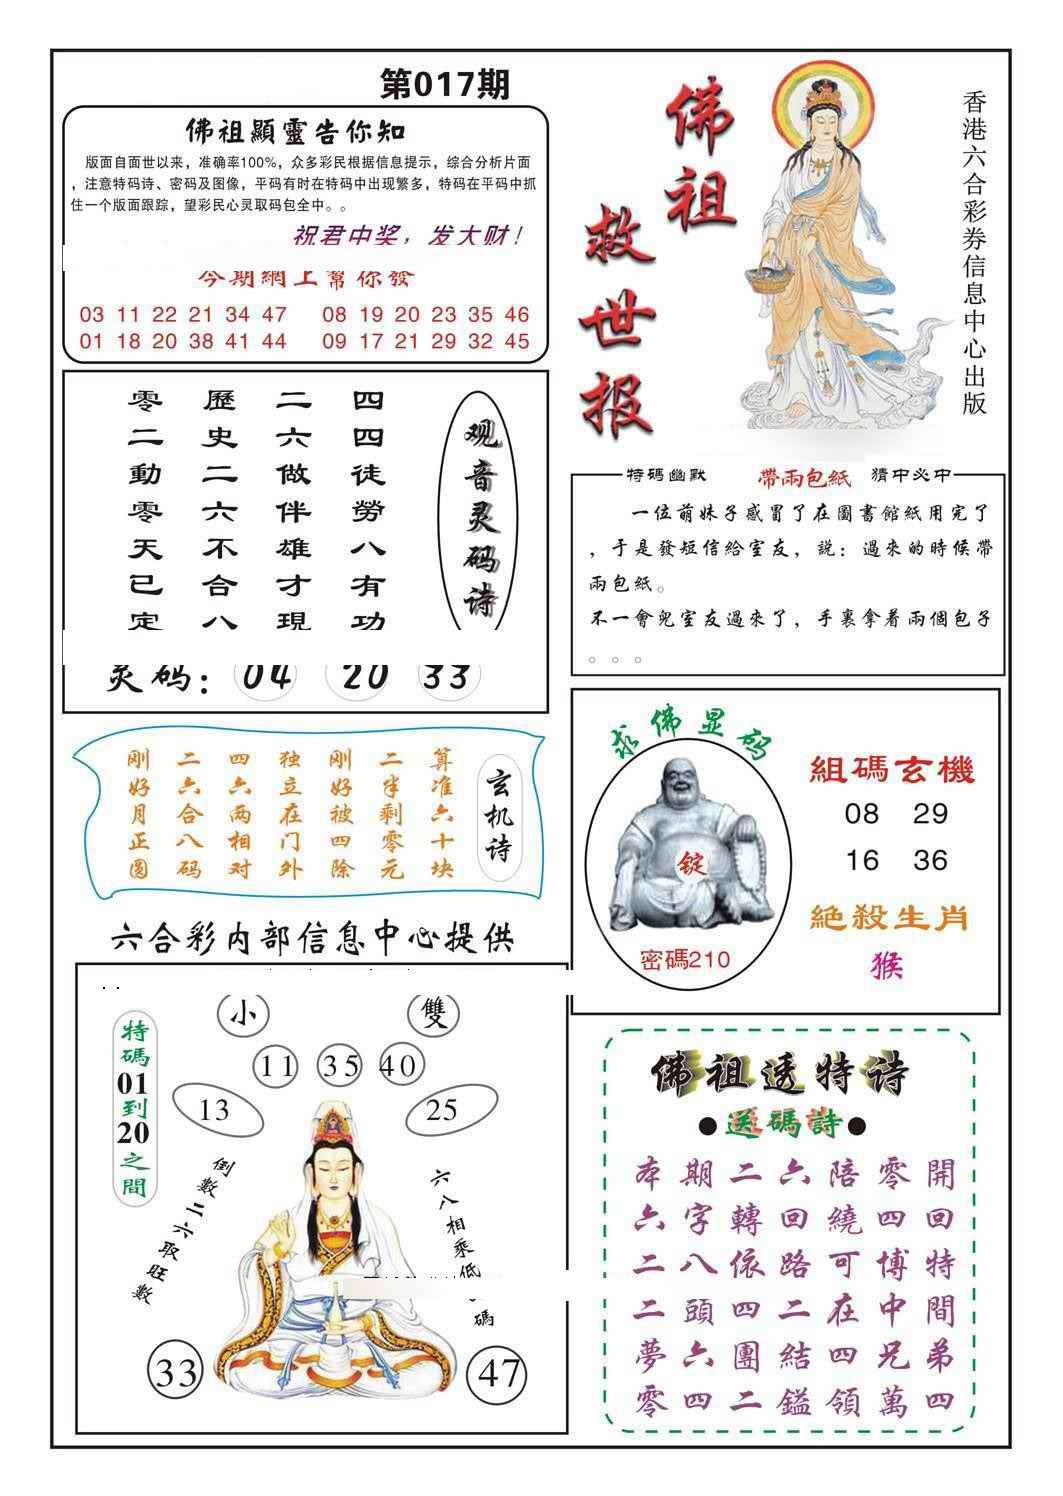 第017期
佛祖顯靈告你知
版面自面世以来，准确率100%，众多彩民根据信息提示，综合分析片面
，注意特码诗、密码及图像，平码有时在特码中出现繁多，特码在平码中抓
住一个版面跟踪，望彩民心灵取码包全中。。
祝君中奖，发大财！
今期網上幫你發
03 11 22 21 34 47 08 19 20 23 35 46
01 18 20 38 41 44 09 17 21 29 32 45
佛祖
救世报
香港六合彩券信息中心出版
观音灵码诗
四四徒勞八有功
二六做伴雄才現
歷史二六不合八
零二動零天已定
灵码：04 20 33
特碼幽默 帶兩包紙 猜中必中
一位萌妹子感冒了在圖書館紙用完了
，于是發短信給室友，説：過來的時候帶
兩包紙。
不一會兒室友過來了，手裏拿着兩個包子
。。。
玄机诗
算准六十块
二半剩零元
刚好被四除
独立在门外
四六两相对
二六合八码
刚好月正圆
求佛显码
錠
密碼210
組碼玄機
08 29
16 36
絕殺生肖
猴
六合彩内部信息中心提供
特碼01到20之間
小 雙
11 35 40
13 25
倒數二六取旺數
六八相乘低
碼
33 47
佛祖透特诗
●送碼詩●
本期二六陪零開
六字轉回繞四回
二八依路可博特
二頭四二在中間
夢六團結四兄弟
零四二鎰領萬四